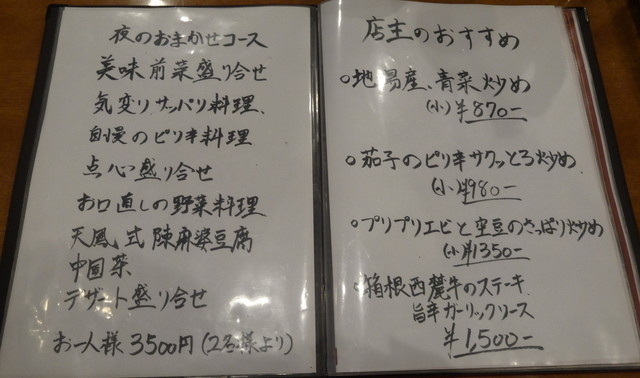 夜のおまかせコース
美味前菜盛り合せ
気変りサッパリ料理、
自慢のピリ辛料理
点心盛り合せ
お口直しの野菜料理
天風式陳麻婆豆腐
中国茶
デザート盛り合せ
お一人様3500円(2名様より)
店主のおすすめ
地場産、青菜炒め
(小)¥870-
茄子のピリ辛サクッとろ炒め
(小)¥980-
プリプリエビと空豆のさっぱり炒め
(小)¥1350-
箱根西麓牛のステーキ
旨辛ガーリックソース
¥1,500-